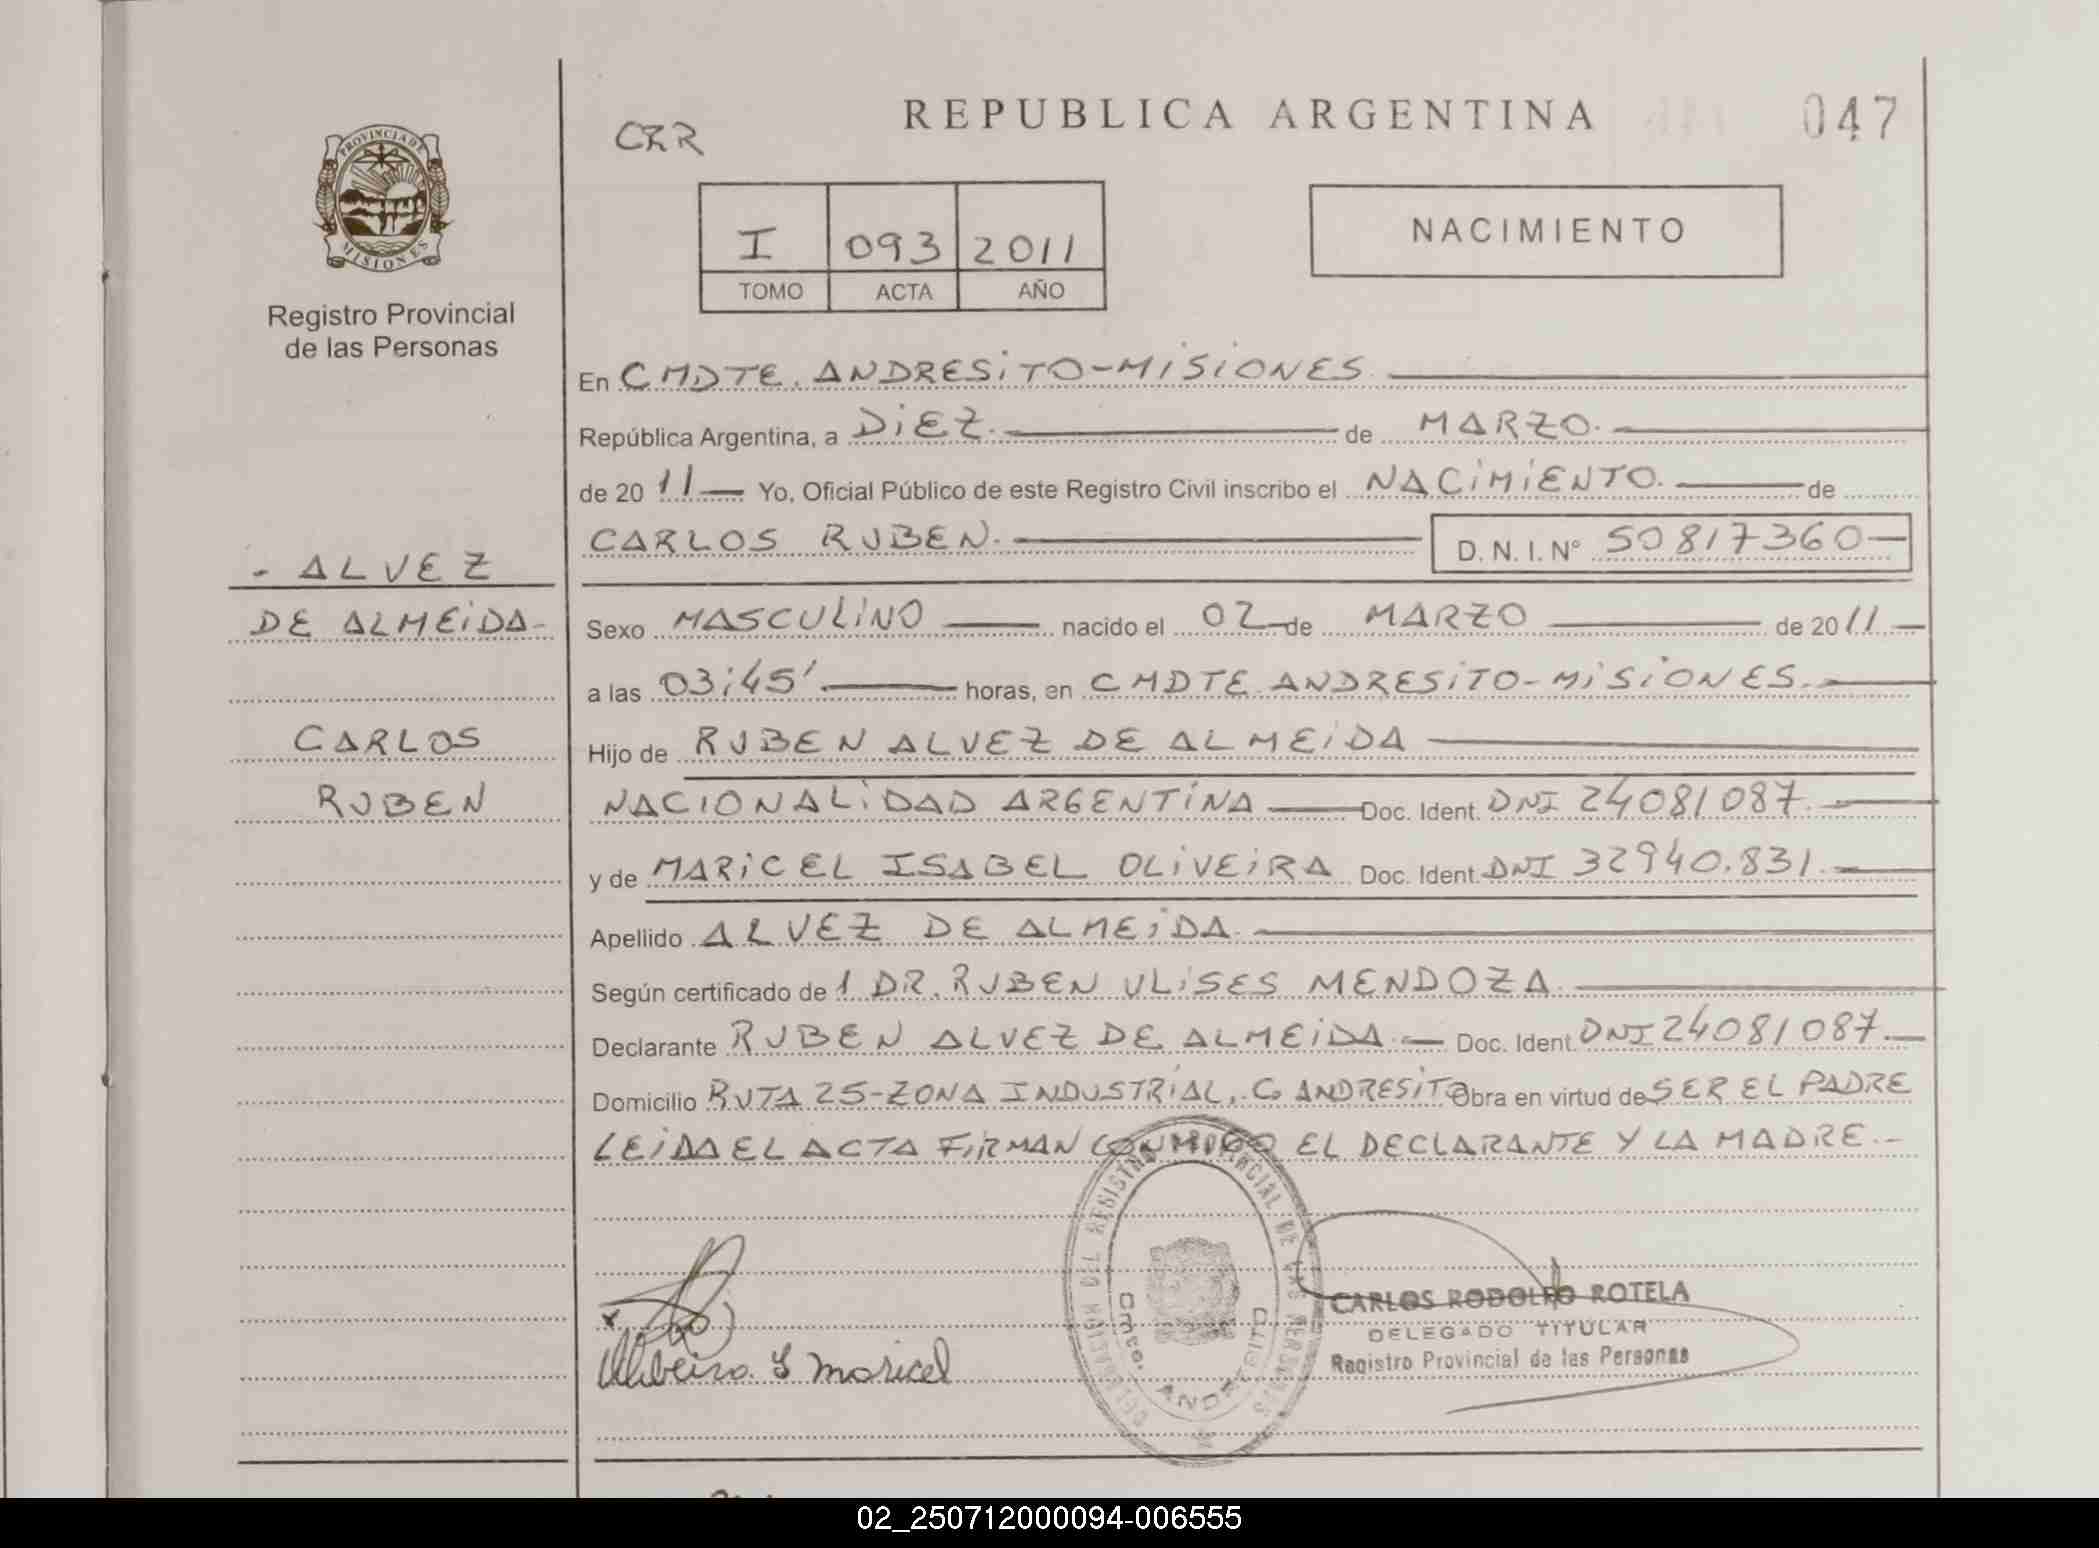 REPUBLICA ARGENTINA
047
CRR
PROVINCIA DE
MISIONES
Registro Provincial
de las Personas
I 093 2011
TOMO ACTA AÑO
NACIMIENTO
En CMDTE. ANDRESITO-MISIONES
República Argentina, a DIEZ. de MARZO.
de 2011 Yo, Oficial Público de este Registro Civil inscribo el NACIMIENTO. de
CARLOS RUBEN. D. N. I. Nº 50817360
- ALVEZ
DE ALMEIDA-
CARLOS
RUBEN
Sexo MASCULINO nacido el 02 de MARZO de 2011
a las 03:45' horas, en CMDTE ANDRESITO-MISIONES.
Hijo de RUBEN ALVEZ DE ALMEIDA
NACIONALIDAD ARGENTINA Doc. Ident. DNI 24081087.
y de MARICEL ISABEL OLIVEIRA Doc. Ident. DNI 32940.831.
Apellido ALVEZ DE ALMEIDA.
Según certificado de 1 DR. RUBEN ULISES MENDOZA.
Declarante RUBEN ALVEZ DE ALMEIDA. Doc. Ident. DNI 24081087.
Domicilio RUTA 25-ZONA INDUSTRIAL, C. ANDRESITO Obra en virtud de SER EL PADRE
LEIDA EL ACTA FIRMAN CONMIGO EL DECLARANTE Y LA MADRE.-
DELEGACION DEL REGISTRO PROVINCIAL DE LAS PERSONAS
Cmte. ANDRESITO
CARLOS RODOLFO ROTELA
DELEGADO TITULAR
Registro Provincial de las Personas
I Maricel
02_250712000094-006555